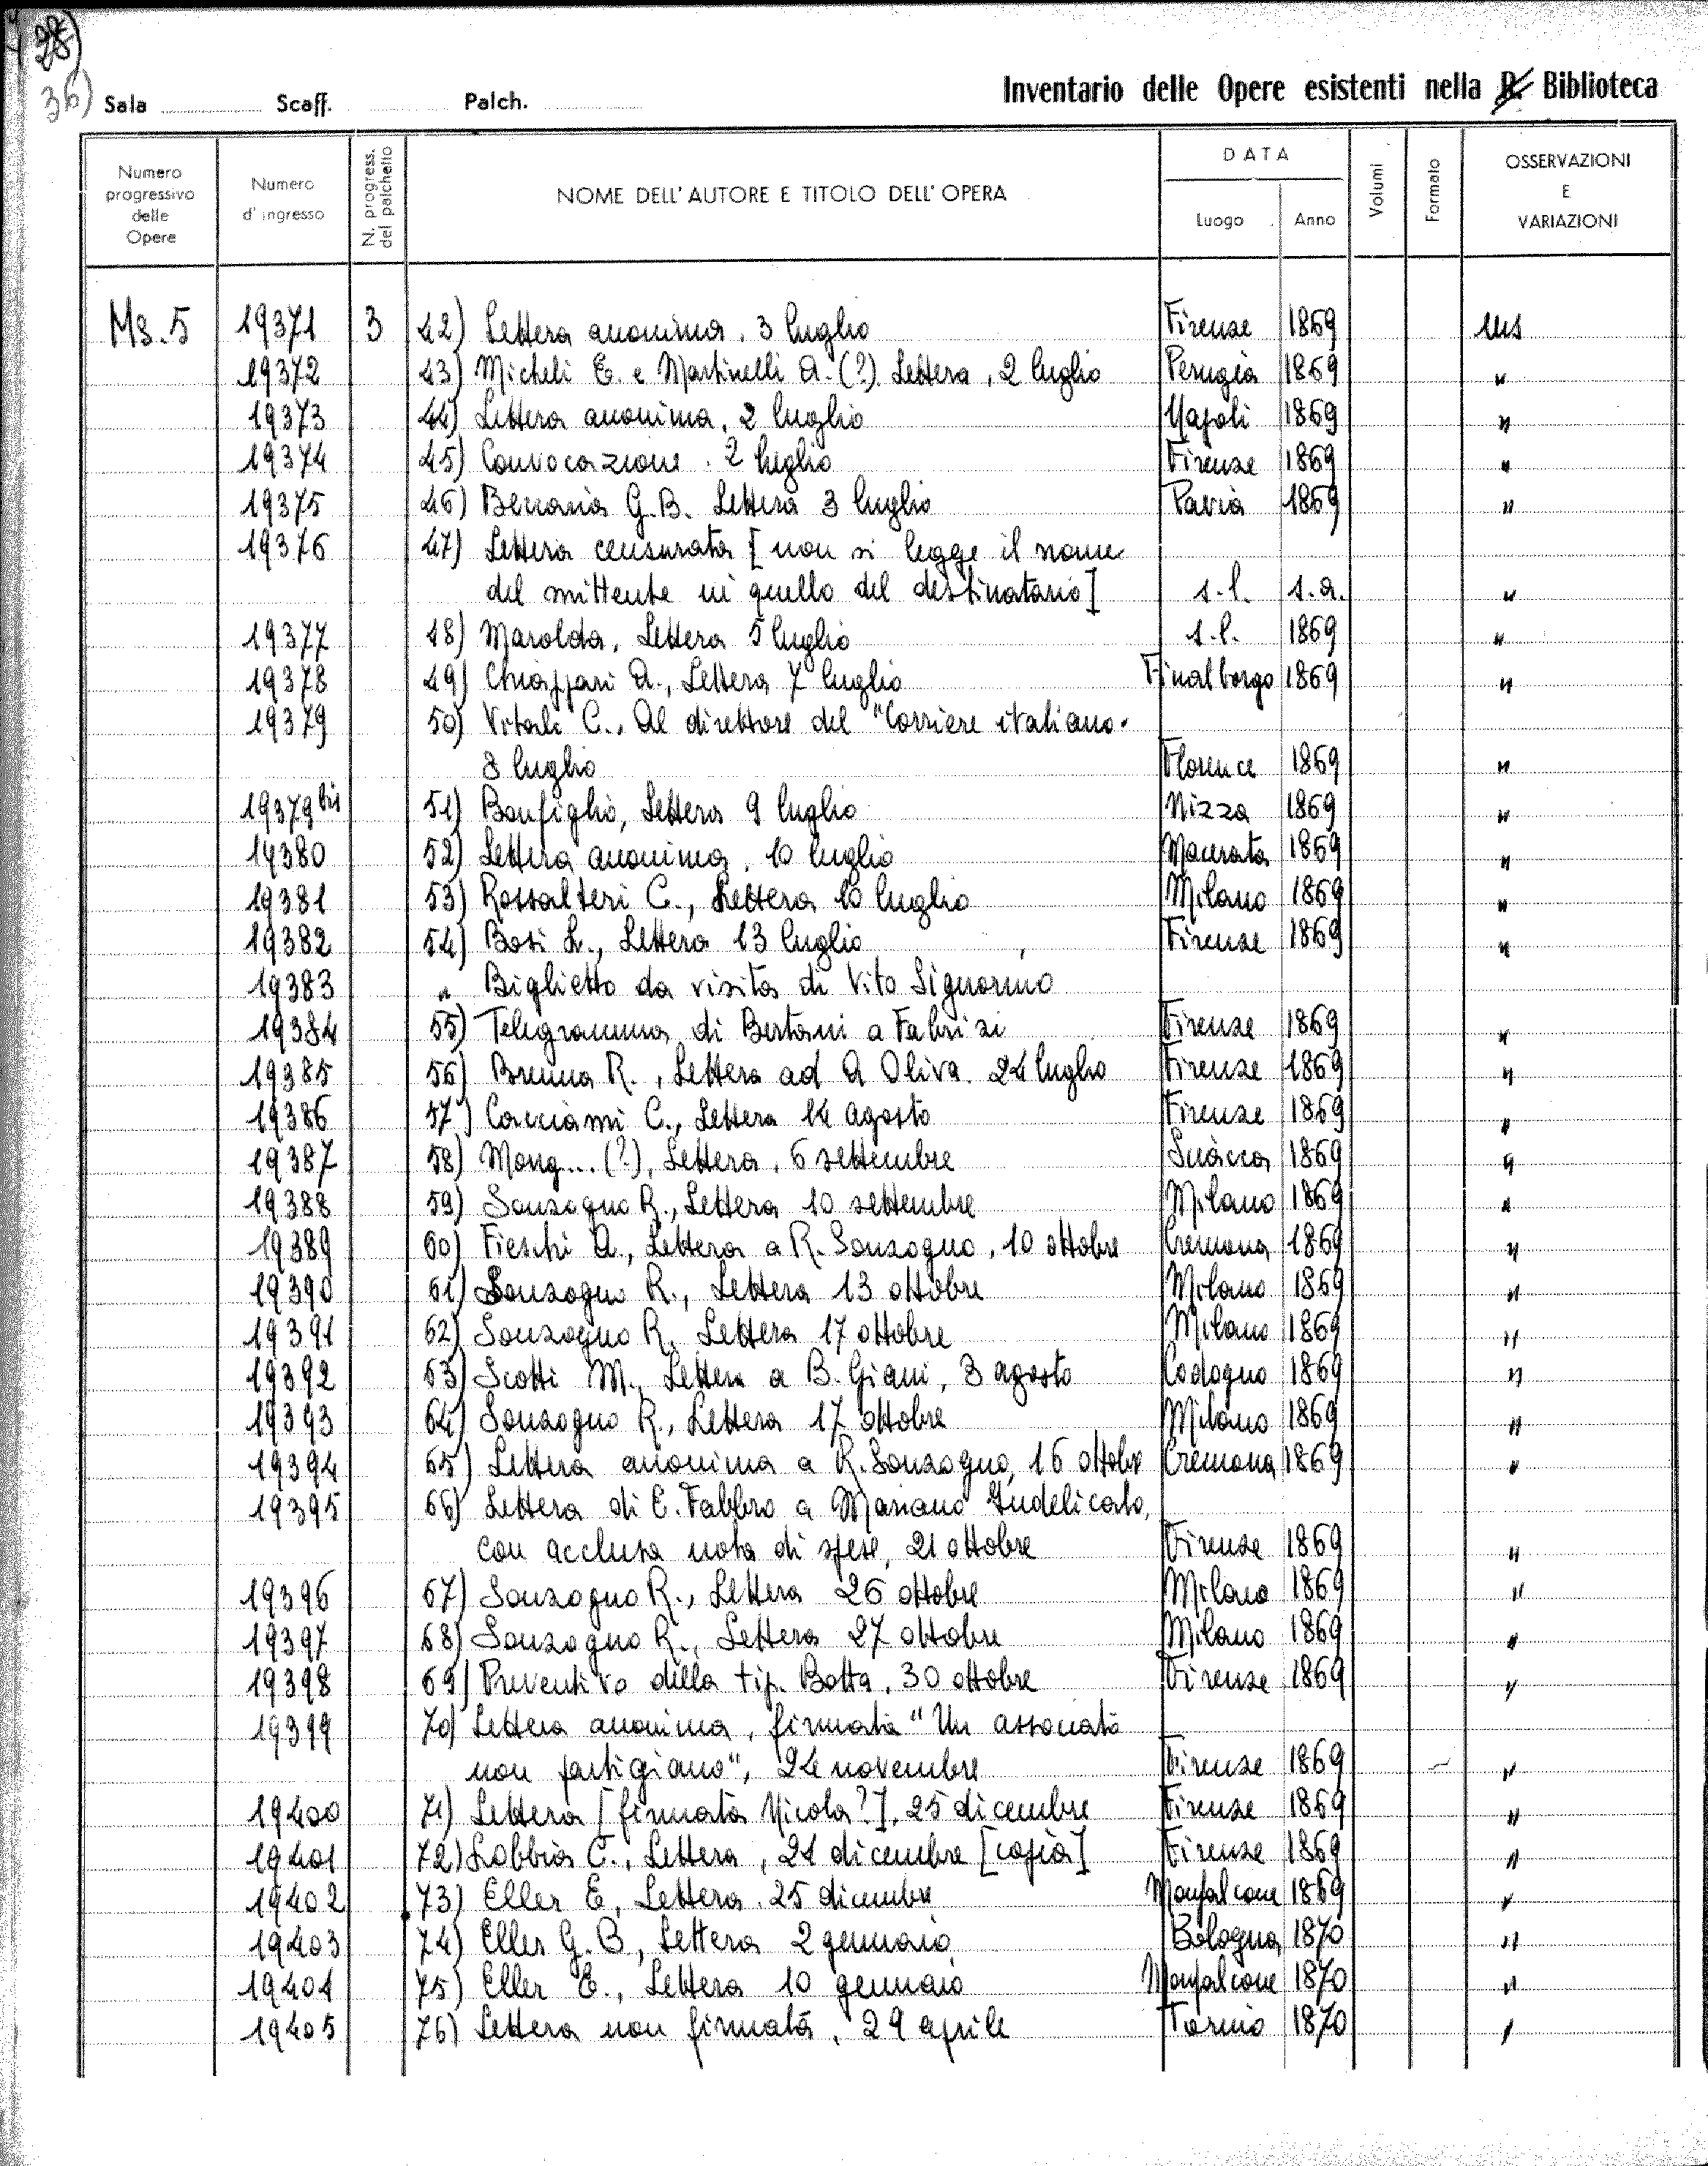 28)
36) Sala Scaff. Palch. Inventario delle Opere esistenti nella R. Biblioteca
Numero progressivo delle Opere
Numero d'ingresso
N. progress. del palchetto
NOME DELL'AUTORE E TITOLO DELL'OPERA
DATA
Luogo
Anno
Volumi
Formato
OSSERVAZIONI E VARIAZIONI
Ms. 5 19371 3 42) Lettera anonima, 3 luglio Firenze 1869 ms
19372 43) Micheli E. e Martinelli A. (?) Lettera, 2 luglio Perugia 1869 "
19373 44) Lettera anonima, 2 luglio Napoli 1869 "
19374 45) Convocazione. 2 luglio Firenze 1869 "
19375 46) G.B. Lettera 3 luglio Pavia 1869 "
19376 47) Lettera censurata [non si legge il nome
del mittente né quello del destinatario] s.l. s.a. "
19377 48) Marolda, Lettera 5 luglio s.l. 1869 "
19378 49) Chiappari A., Lettera 7 luglio Finalborgo 1869 "
19379 50) Vitali C., Al direttore del "Corriere italiano"
8 luglio Florence 1869 "
19379 bis 51) Bonfiglio, Lettera 9 luglio Nizza 1869 "
19380 52) Lettera anonima, 10 luglio Macerata 1869 "
19381 53) Rossalteri C., Lettera 10 luglio Milano 1869 "
19382 54) Bosi L., Lettera 13 luglio Firenze 1869 "
19383 " Biglietto da visita di Vito Signorino
19384 55) Telegramma di Bertani a Fabrizi Firenze 1869 "
19385 56) Brenna R., Lettera ad A Oliva. 24 luglio Firenze 1869 "
19386 57) C., Lettera 14 agosto Firenze 1869 "
19387 58) Mong... (?), Lettera, 6 settembre 1869 "
19388 59) Sonzogno R., Lettera 10 settembre Milano 1869 "
19389 60) Fieschi A., Lettera a R. Sonzogno, 10 ottobre Cremona 1869 "
19390 61) Sonzogno R., Lettera 13 ottobre Milano 1869 "
19391 62) Sonzogno R. Lettera 17 ottobre Milano 1869 "
19392 63) Scotti M., Lettera a B. Giani, 3 agosto Codogno 1869 "
19393 64) Sonzogno R., Lettera 17 ottobre Milano 1869 "
19394 65) Lettera anonima a R. Sonzogno, 16 ottobre Cremona 1869 "
19395 66) Lettera di E. Fabbro a Mariano Indelicato,
con acclusa nota di spese, 21 ottobre Firenze 1869 "
19396 67) Sonzogno R., Lettera 26 ottobre Milano 1869 "
19397 68) Sonzogno R., Lettera 27 ottobre Milano 1869 "
19398 69) Preventivo della tip. Botta, 30 ottobre Firenze 1869 "
19399 70) Lettera anonima, firmata "Un associato
non partigiano", 24 novembre Firenze 1869 "
19400 71) Lettera [firmata Nicola?], 25 dicembre Firenze 1869 "
19401 72) Lobbia C., Lettera, 21 dicembre [copia] Firenze 1869 "
19402 73) Eller E, Lettera. 25 dicembre Monfalcone 1869 "
19403 74) Eller G.B, Lettera 2 gennaio Bologna 1870 "
19404 75) Eller E., Lettera 10 gennaio Monfalcone 1870 "
19405 76) Lettera non firmata, 29 aprile Torino 1870 "